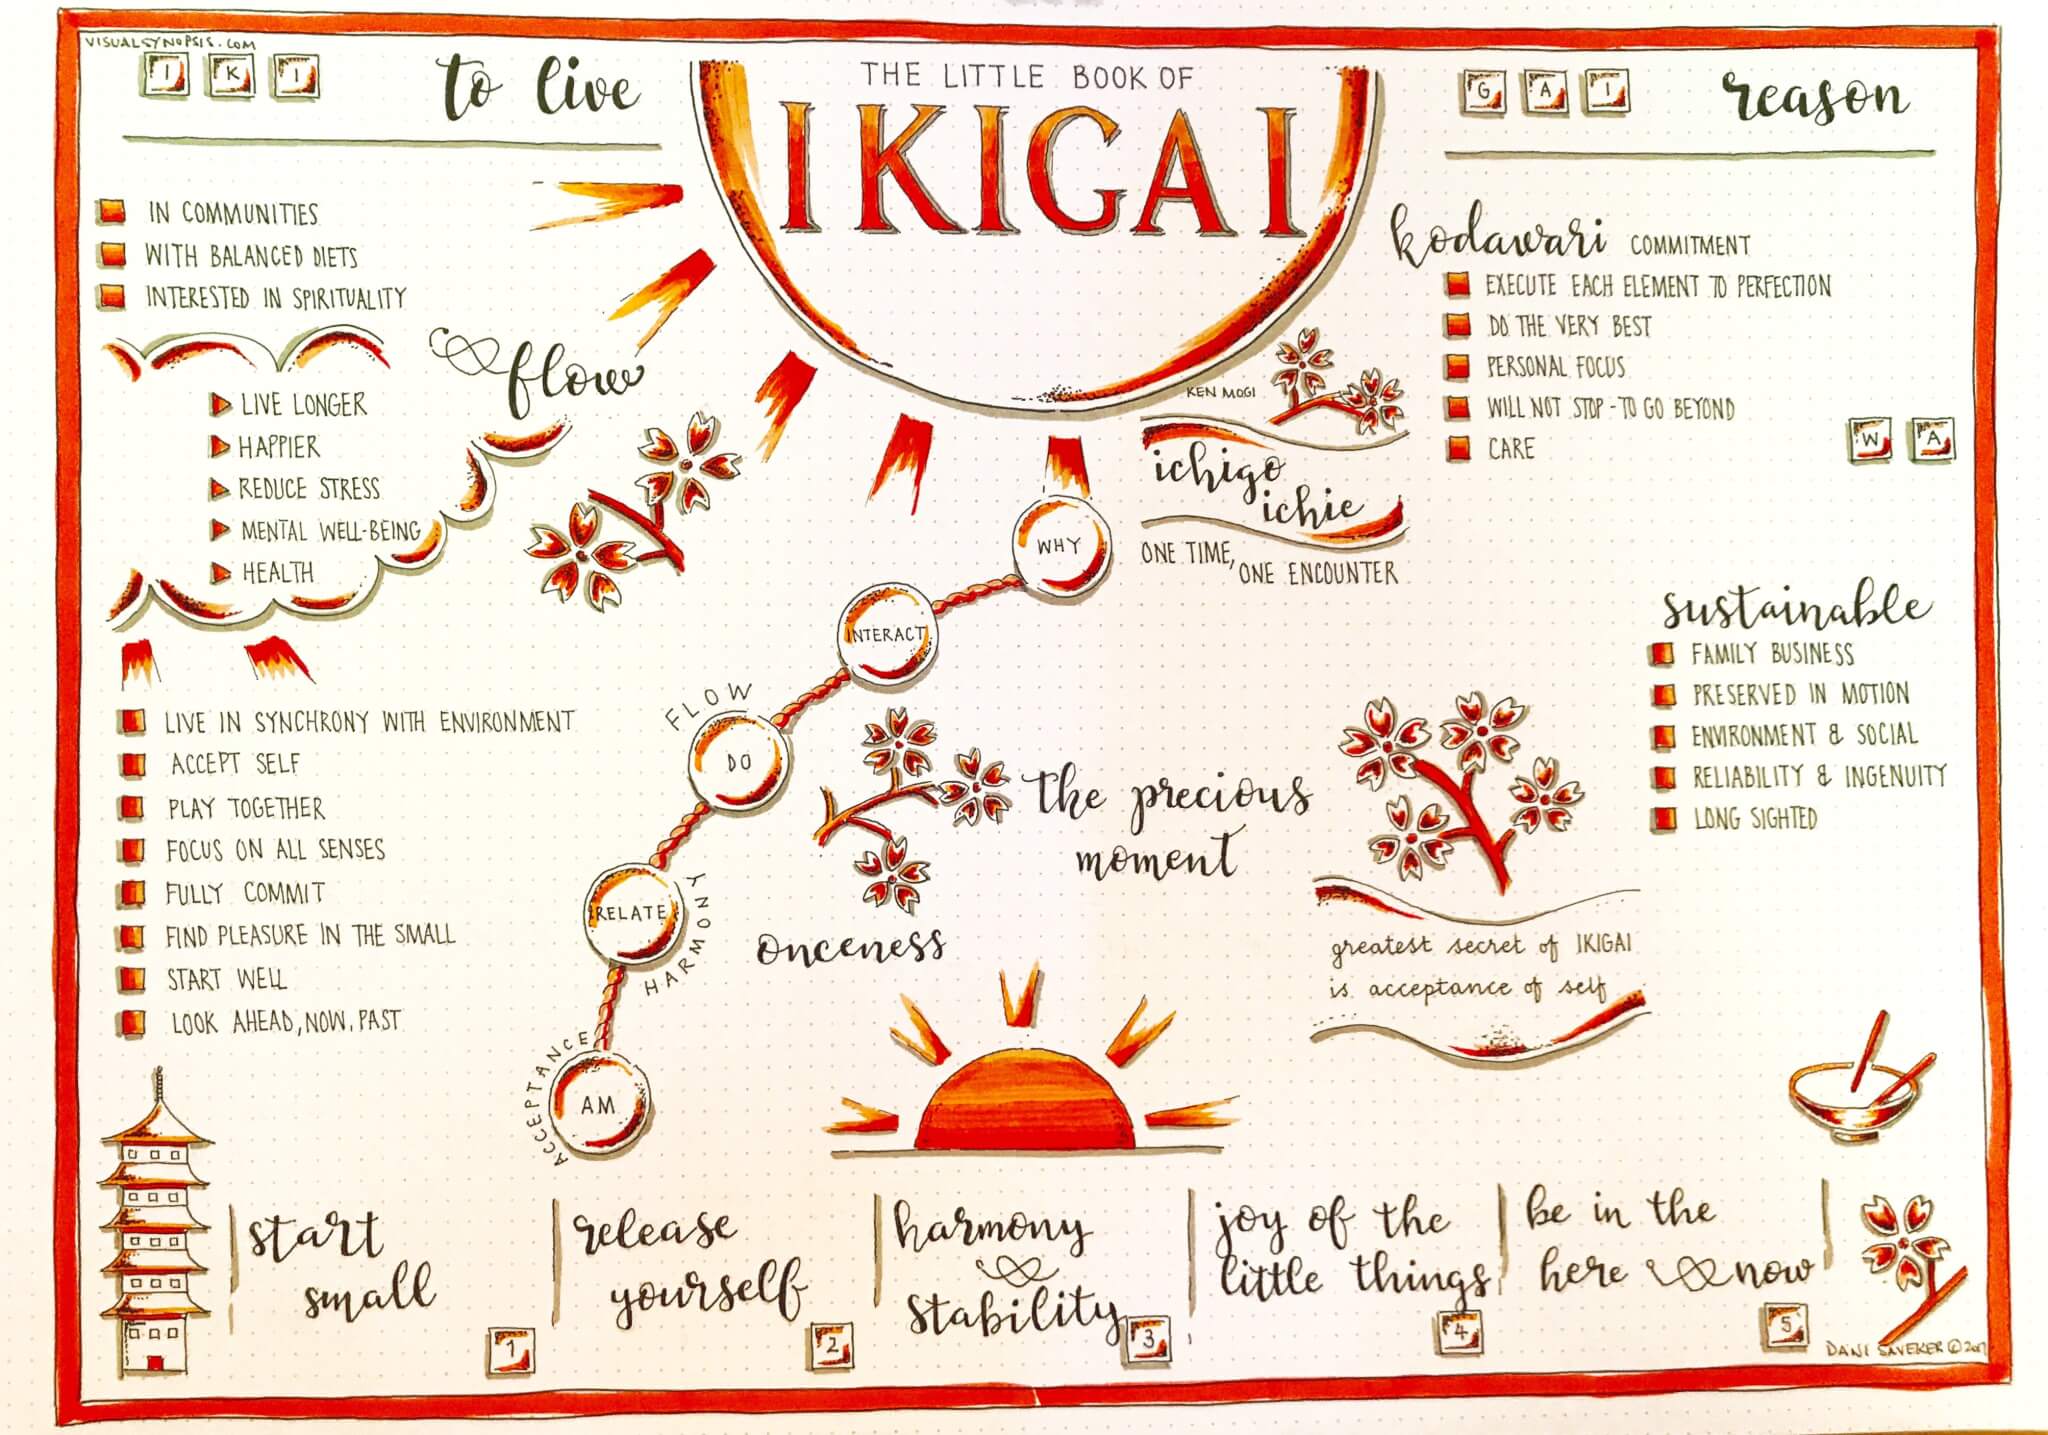 VISUALSYNOPSIS.COM
I K I
to live
THE LITTLE BOOK OF
IKIGAI
KEN MOGI
G A I
reason
IN COMMUNITIES
WITH BALANCED DIETS
INTERESTED IN SPIRITUALITY
& flow
LIVE LONGER
HAPPIER
REDUCE STRESS
MENTAL WELL-BEING
HEALTH
LIVE IN SYNCHRONY WITH ENVIRONMENT
ACCEPT SELF
PLAY TOGETHER
FOCUS ON ALL SENSES
FULLY COMMIT
FIND PLEASURE IN THE SMALL
START WELL
LOOK AHEAD, NOW, PAST
WHY
INTERACT
FLOW
DO
RELATE
HARMONY
ACCEPTANCE
AM
ichigo
ichie
ONE TIME,
ONE ENCOUNTER
the precious
moment
onceness
kodawari COMMITMENT
EXECUTE EACH ELEMENT TO PERFECTION
DO THE VERY BEST
PERSONAL FOCUS
WILL NOT STOP - TO GO BEYOND
CARE
W A
sustainable
FAMILY BUSINESS
PRESERVED IN MOTION
ENVIRONMENT & SOCIAL
RELIABILITY & INGENUITY
LONG SIGHTED
greatest secret of IKIGAI
is acceptance of self
start
small
1
release
yourself
2
harmony
&
stability
3
joy of the
little things
4
be in the
here & now
5
DANI SAVEKER © 2017